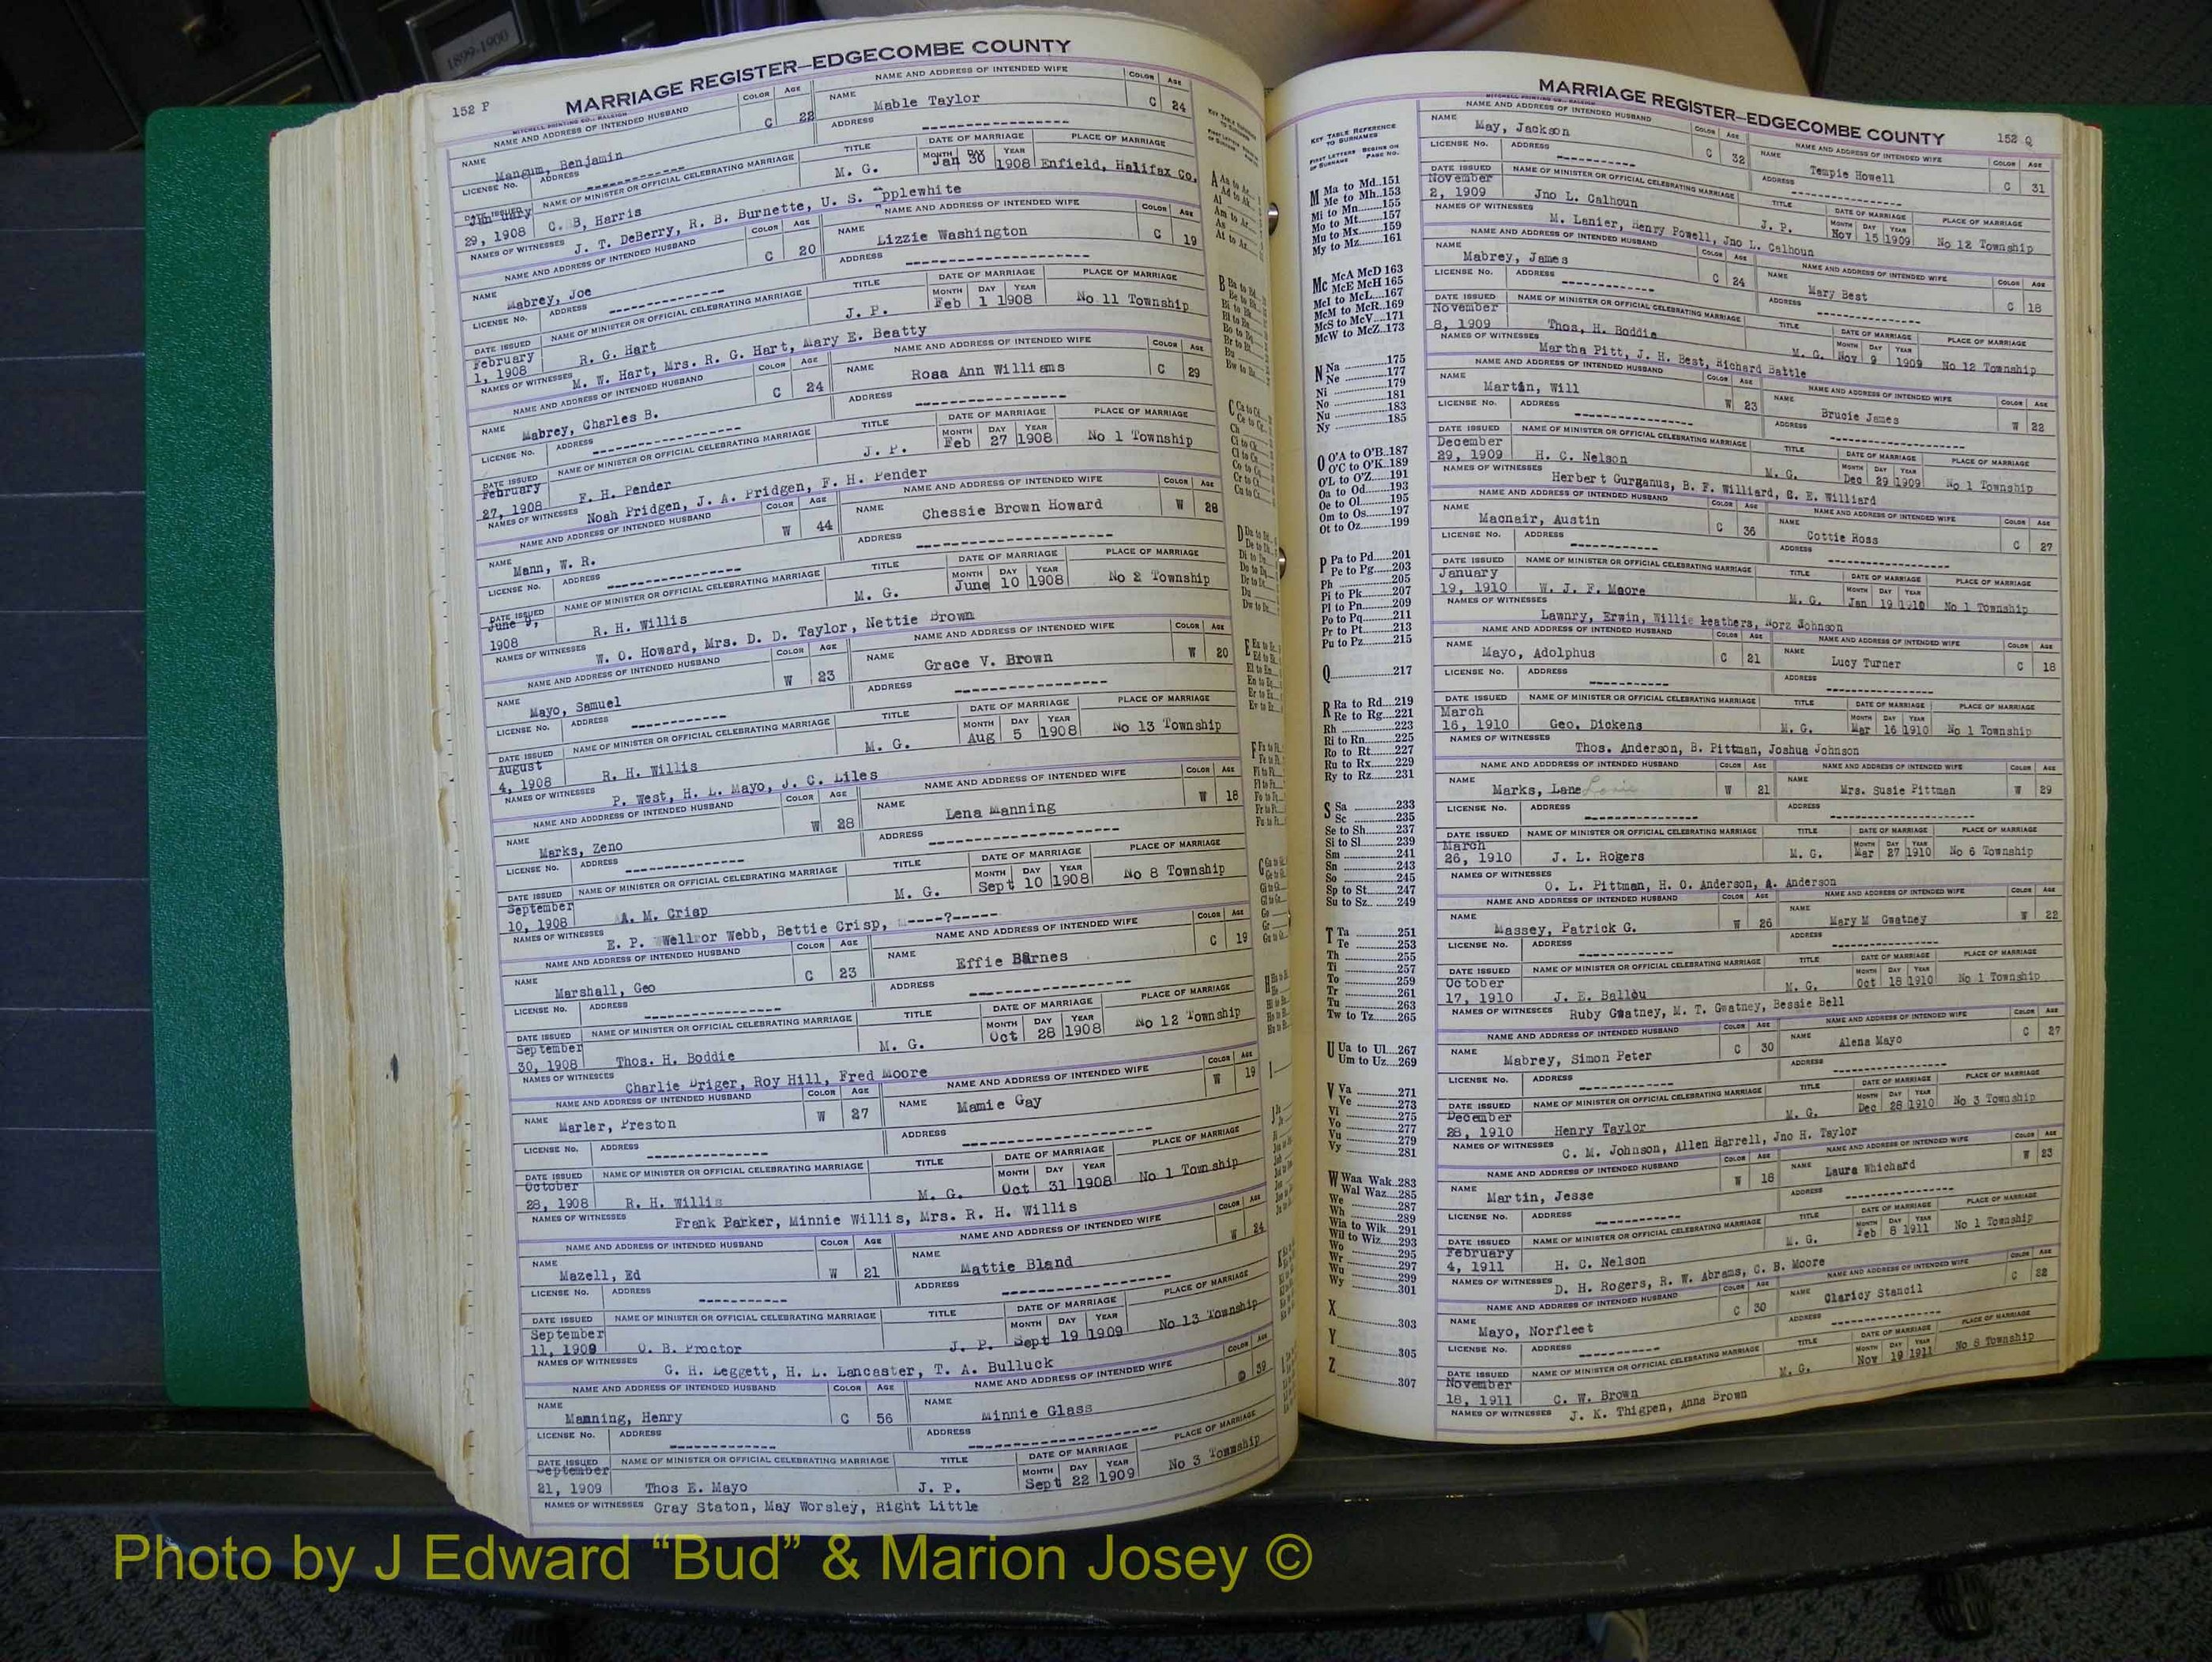 1899-1900
152 P
MARRIAGE REGISTER—EDGECOMBE COUNTY
MITCHELL PRINTING CO., RALEIGH
NAME AND ADDRESS OF INTENDED HUSBAND COLOR AGE NAME AND ADDRESS OF INTENDED WIFE COLOR AGE
NAME Mangum, Benjamin C 22 NAME Mable Taylor C 24
LICENSE No. ADDRESS ADDRESS
DATE ISSUED NAME OF MINISTER OR OFFICIAL CELEBRATING MARRIAGE TITLE DATE OF MARRIAGE PLACE OF MARRIAGE
January 29, 1908 C. B, Harris M. G. MONTH DAY YEAR Jan 30 1908 Enfield, Halifax Co,
NAMES OF WITNESSES J. T. DeBerry, R. B. Burnette, U. S. Applewhite
NAME AND ADDRESS OF INTENDED HUSBAND COLOR AGE NAME AND ADDRESS OF INTENDED WIFE COLOR AGE
NAME Mabrey, Joe C 20 NAME Lizzie Washington C 19
LICENSE No. ADDRESS ADDRESS
DATE ISSUED NAME OF MINISTER OR OFFICIAL CELEBRATING MARRIAGE TITLE DATE OF MARRIAGE PLACE OF MARRIAGE
February 1, 1908 R. G. Hart J. P. MONTH DAY YEAR Feb 1 1908 No 11 Township
NAMES OF WITNESSES M. W. Hart, Mrs. R. G. Hart, Mary E. Beatty
NAME AND ADDRESS OF INTENDED HUSBAND COLOR AGE NAME AND ADDRESS OF INTENDED WIFE COLOR AGE
NAME Mabrey, Charles B. C 24 NAME Rosa Ann Williams C 29
LICENSE No. ADDRESS ADDRESS
DATE ISSUED NAME OF MINISTER OR OFFICIAL CELEBRATING MARRIAGE TITLE DATE OF MARRIAGE PLACE OF MARRIAGE
February 27, 1908 F. H. Pender J. P. MONTH DAY YEAR Feb 27 1908 No 1 Township
NAMES OF WITNESSES Noah Pridgen, J. A. Pridgen, F. H. Pender
NAME AND ADDRESS OF INTENDED HUSBAND COLOR AGE NAME AND ADDRESS OF INTENDED WIFE COLOR AGE
NAME Mann, W. R. W 44 NAME Chessie Brown Howard W 28
LICENSE No. ADDRESS ADDRESS
DATE ISSUED NAME OF MINISTER OR OFFICIAL CELEBRATING MARRIAGE TITLE DATE OF MARRIAGE PLACE OF MARRIAGE
June 9, 1908 R. H. Willis M. G. MONTH DAY YEAR June 10 1908 No 2 Township
NAMES OF WITNESSES W. O. Howard, Mrs. D. D. Taylor, Nettie Brown
NAME AND ADDRESS OF INTENDED HUSBAND COLOR AGE NAME AND ADDRESS OF INTENDED WIFE COLOR AGE
NAME Mayo, Samuel W 23 NAME Grace V. Brown W 20
LICENSE No. ADDRESS ADDRESS
DATE ISSUED NAME OF MINISTER OR OFFICIAL CELEBRATING MARRIAGE TITLE DATE OF MARRIAGE PLACE OF MARRIAGE
August 4, 1908 R. H. Willis M. G. MONTH DAY YEAR Aug 5 1908 No 13 Township
NAMES OF WITNESSES P. West, H. L. Mayo, J. C. Liles
NAME AND ADDRESS OF INTENDED HUSBAND COLOR AGE NAME AND ADDRESS OF INTENDED WIFE COLOR AGE
NAME Marks, Zeno W 28 NAME Lena Manning W 18
LICENSE No. ADDRESS ADDRESS
DATE ISSUED NAME OF MINISTER OR OFFICIAL CELEBRATING MARRIAGE TITLE DATE OF MARRIAGE PLACE OF MARRIAGE
September 10, 1908 A. M. Crisp M. G. MONTH DAY YEAR Sept 10 1908 No 8 Township
NAMES OF WITNESSES E. P. Wellror Webb, Bettie Crisp, -----?-----
NAME AND ADDRESS OF INTENDED HUSBAND COLOR AGE NAME AND ADDRESS OF INTENDED WIFE COLOR AGE
NAME Marshall, Geo C 23 NAME Effie Barnes C 19
LICENSE No. ADDRESS ADDRESS
DATE ISSUED NAME OF MINISTER OR OFFICIAL CELEBRATING MARRIAGE TITLE DATE OF MARRIAGE PLACE OF MARRIAGE
September 30, 1908 Thos. H. Boddie M. G. MONTH DAY YEAR Oct 28 1908 No 12 Township
NAMES OF WITNESSES Charlie Driger, Roy Hill, Fred Moore
NAME AND ADDRESS OF INTENDED HUSBAND COLOR AGE NAME AND ADDRESS OF INTENDED WIFE COLOR AGE
NAME Marler, Preston W 27 NAME Mamie Gay W 19
LICENSE No. ADDRESS ADDRESS
DATE ISSUED NAME OF MINISTER OR OFFICIAL CELEBRATING MARRIAGE TITLE DATE OF MARRIAGE PLACE OF MARRIAGE
October 28, 1908 R. H. Willis M. G. MONTH DAY YEAR Oct 31 1908 No 1 Township
NAMES OF WITNESSES Frank Parker, Minnie Willis, Mrs. R. H. Willis
NAME AND ADDRESS OF INTENDED HUSBAND COLOR AGE NAME AND ADDRESS OF INTENDED WIFE COLOR AGE
NAME Mazell, Ed W 21 NAME Mattie Bland W 24
LICENSE No. ADDRESS ADDRESS
DATE ISSUED NAME OF MINISTER OR OFFICIAL CELEBRATING MARRIAGE TITLE DATE OF MARRIAGE PLACE OF MARRIAGE
September 11, 1909 O. B. Proctor J. P. MONTH DAY YEAR Sept 19 1909 No 13 Township
NAMES OF WITNESSES G. H. Leggett, H. L. Lancaster, T. A. Bulluck
NAME AND ADDRESS OF INTENDED HUSBAND COLOR AGE NAME AND ADDRESS OF INTENDED WIFE COLOR AGE
NAME Manning, Henry C 56 NAME Minnie Glass 39
LICENSE No. ADDRESS ADDRESS
DATE ISSUED NAME OF MINISTER OR OFFICIAL CELEBRATING MARRIAGE TITLE DATE OF MARRIAGE PLACE OF MARRIAGE
September 21, 1909 Thos E. Mayo J. P. MONTH DAY YEAR Sept 22 1909 No 3 Township
NAMES OF WITNESSES Gray Staton, May Worsley, Right Little
KEY TABLE REFERENCE TO SURNAMES
FIRST LETTERS OF SURNAME BEGINS ON PAGE NO.
M Ma to Md..151
Me to Mh..153
Mi to Mn.....155
Mo to Mt.....157
Mu to Mx....159
My to Mz....161
Mc McA McD 163
McE McH 165
McI to McL....167
McM to McR..169
McS to McV....171
McW to McZ..173
N Na ............175
Ne ............177
Ni ............179
No ............181
Nu ............183
Ny ............185
O O'A to O'B..187
O'C to O'K..189
O'L to O'Z.....191
Oa to Od.......193
Oe to Ol........195
Om to Os......197
Ot to Oz........199
P Pa to Pd.....201
Pe to Pg.....203
Ph ...............205
Pi to Pk........207
Pl to Pn........209
Po to Pq.......211
Pr to Pt........213
Pu to Pz.......215
Q.................217
R Ra to Rd...219
Re to Rg....221
Rh ..............223
Ri to Rn.......225
Ro to Rt.......227
Ru to Rx......229
Ry to Rz......231
S Sa ............233
Sc ............235
Se to Sh......237
Si to Sl........239
Sm .............241
Sn ..............243
So ..............245
Sp to St......247
Su to Sz.....249
T Ta ............251
Te ............253
Th ..............255
Ti ...............257
To ..............259
Tr ...............261
Tu ..............263
Tw to Tz......265
U Ua to Ul...267
Um to Uz...269
V Va ............271
Ve ............273
Vi ..............275
Vo .............277
Vu .............279
Vy .............281
W Waa Wak..283
Wal Waz...285
We .............287
Wh .............289
Wia to Wik...291
Wil to Wiz....293
Wo .............295
Wr ..............297
Wu .............299
Wy .............301
X..................303
Y..................305
Z..................307
MARRIAGE REGISTER—EDGECOMBE COUNTY
152 Q
MITCHELL PRINTING CO., RALEIGH
NAME AND ADDRESS OF INTENDED HUSBAND COLOR AGE NAME AND ADDRESS OF INTENDED WIFE COLOR AGE
NAME May, Jackson C 32 NAME Tempie Howell C 31
LICENSE No. ADDRESS ADDRESS
DATE ISSUED NAME OF MINISTER OR OFFICIAL CELEBRATING MARRIAGE TITLE DATE OF MARRIAGE PLACE OF MARRIAGE
November 2, 1909 Jno L. Calhoun J. P. MONTH DAY YEAR Nov 15 1909 No 12 Township
NAMES OF WITNESSES M. Lanier, Henry Powell, Jno L. Calhoun
NAME AND ADDRESS OF INTENDED HUSBAND COLOR AGE NAME AND ADDRESS OF INTENDED WIFE COLOR AGE
NAME Mabrey, James C 24 NAME Mary Best C 18
LICENSE No. ADDRESS ADDRESS
DATE ISSUED NAME OF MINISTER OR OFFICIAL CELEBRATING MARRIAGE TITLE DATE OF MARRIAGE PLACE OF MARRIAGE
November 8, 1909 Thos. H. Boddie M. G. MONTH DAY YEAR Nov 9 1909 No 12 Township
NAMES OF WITNESSES Martha Pitt, J. H. Best, Richard Battle
NAME AND ADDRESS OF INTENDED HUSBAND COLOR AGE NAME AND ADDRESS OF INTENDED WIFE COLOR AGE
NAME Martin, Will W 23 NAME Brucie James W 22
LICENSE No. ADDRESS ADDRESS
DATE ISSUED NAME OF MINISTER OR OFFICIAL CELEBRATING MARRIAGE TITLE DATE OF MARRIAGE PLACE OF MARRIAGE
December 29, 1909 H. C. Nelson M. G. MONTH DAY YEAR Dec 29 1909 No 1 Township
NAMES OF WITNESSES Herbert Gurganus, B. F. Williard, C. E. Williard
NAME AND ADDRESS OF INTENDED HUSBAND COLOR AGE NAME AND ADDRESS OF INTENDED WIFE COLOR AGE
NAME Macnair, Austin C 36 NAME Cottie Ross C 27
LICENSE No. ADDRESS ADDRESS
DATE ISSUED NAME OF MINISTER OR OFFICIAL CELEBRATING MARRIAGE TITLE DATE OF MARRIAGE PLACE OF MARRIAGE
January 19, 1910 W. J. F. Moore M. G. MONTH DAY YEAR Jan 19 1910 No 1 Township
NAMES OF WITNESSES Lawnry, Erwin, Willie Leathers, Nora Johnson
NAME AND ADDRESS OF INTENDED HUSBAND COLOR AGE NAME AND ADDRESS OF INTENDED WIFE COLOR AGE
NAME Mayo, Adolphus C 21 NAME Lucy Turner C 18
LICENSE No. ADDRESS ADDRESS
DATE ISSUED NAME OF MINISTER OR OFFICIAL CELEBRATING MARRIAGE TITLE DATE OF MARRIAGE PLACE OF MARRIAGE
March 16, 1910 Geo. Dickens M. G. MONTH DAY YEAR Mar 16 1910 No 1 Township
NAMES OF WITNESSES Thos. Anderson, B. Pittman, Joshua Johnson
NAME AND ADDRESS OF INTENDED HUSBAND COLOR AGE NAME AND ADDRESS OF INTENDED WIFE COLOR AGE
NAME Marks, Lane W 21 NAME Mrs. Susie Pittman W 29
LICENSE No. ADDRESS ADDRESS
DATE ISSUED NAME OF MINISTER OR OFFICIAL CELEBRATING MARRIAGE TITLE DATE OF MARRIAGE PLACE OF MARRIAGE
March 26, 1910 J. L. Rogers M. G. MONTH DAY YEAR Mar 27 1910 No 6 Township
NAMES OF WITNESSES O. L. Pittman, H. O. Anderson, A. Anderson
NAME AND ADDRESS OF INTENDED HUSBAND COLOR AGE NAME AND ADDRESS OF INTENDED WIFE COLOR AGE
NAME Massey, Patrick G. W 26 NAME Mary M Gwatney W 22
LICENSE No. ADDRESS ADDRESS
DATE ISSUED NAME OF MINISTER OR OFFICIAL CELEBRATING MARRIAGE TITLE DATE OF MARRIAGE PLACE OF MARRIAGE
October 17, 1910 J. E. Ballou M. G. MONTH DAY YEAR Oct 18 1910 No 1 Township
NAMES OF WITNESSES Ruby Gwatney, M. T. Gwatney, Bessie Bell
NAME AND ADDRESS OF INTENDED HUSBAND COLOR AGE NAME AND ADDRESS OF INTENDED WIFE COLOR AGE
NAME Mabrey, Simon Peter C 30 NAME Alena Mayo C 27
LICENSE No. ADDRESS ADDRESS
DATE ISSUED NAME OF MINISTER OR OFFICIAL CELEBRATING MARRIAGE TITLE DATE OF MARRIAGE PLACE OF MARRIAGE
December 28, 1910 Henry Taylor M. G. MONTH DAY YEAR Dec 28 1910 No 3 Township
NAMES OF WITNESSES C. M. Johnson, Allen Harrell, Jno H. Taylor
NAME AND ADDRESS OF INTENDED HUSBAND COLOR AGE NAME AND ADDRESS OF INTENDED WIFE COLOR AGE
NAME Martin, Jesse W 18 NAME Laura Whichard W 23
LICENSE No. ADDRESS ADDRESS
DATE ISSUED NAME OF MINISTER OR OFFICIAL CELEBRATING MARRIAGE TITLE DATE OF MARRIAGE PLACE OF MARRIAGE
February 4, 1911 H. C. Nelson M. G. MONTH DAY YEAR Feb 8 1911 No 1 Township
NAMES OF WITNESSES D. H. Rogers, R. W. Abrams, C. B. Moore
NAME AND ADDRESS OF INTENDED HUSBAND COLOR AGE NAME AND ADDRESS OF INTENDED WIFE COLOR AGE
NAME Mayo, Norfleet C 30 NAME Claricy Stancil C 22
LICENSE No. ADDRESS ADDRESS
DATE ISSUED NAME OF MINISTER OR OFFICIAL CELEBRATING MARRIAGE TITLE DATE OF MARRIAGE PLACE OF MARRIAGE
November 18, 1911 C. W. Brown M. G. MONTH DAY YEAR Nov 19 1911 No 8 Township
NAMES OF WITNESSES J. K. Thigpen, Anna Brown
Photo by J Edward “Bud” & Marion Josey ©